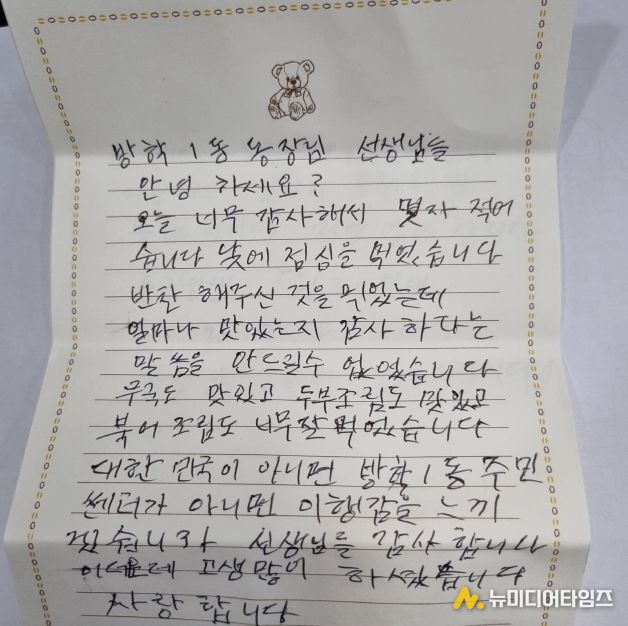 방학 1동 동장님 선생님들
안녕 하세요?
오늘 너무 감사해서 몇자 적어
습니다 낮에 점심을 먹었습니다
반찬 해주신 것을 먹었는데
얼마나 맛있는지 감사 하다는
말씀을 안드릴수 없었습니다
무국도 맛있고 두부조림도 맛있고
북어 조림도 너무잘 먹었습니다
대한 민국이 아니면 방학1동 주민
쎈터가 아니면 이행감을 느끼
겠습니까 선생님들 감사 합니다
고생많이 하셨습니다
사랑 합니다
뉴미디어타임즈